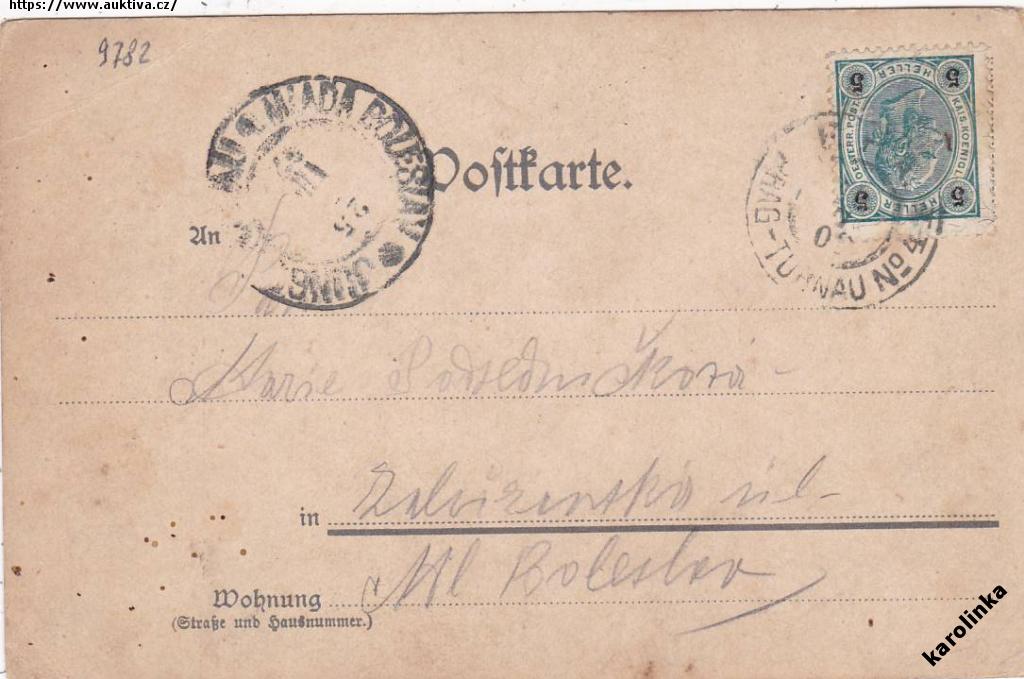 https://www.auktiva.cz/
9782
Postkarte.
An
MLADÁ BOLESLAV * JUNG
25
III
5 HELLER 5
OESTERR. POST. KAIS. KOENIGL.
5 HELLER 5
PRAG-TURNAU No 4
Marie
in
úl
Ml Boleslav
Wohnung
(Straße und Hausnummer.)
karolinka